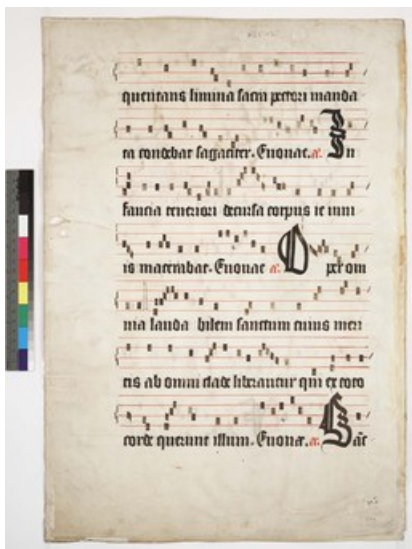 quentans limina sacra pectori manda
ta condebat sagaciter. Euouae. a. In
fancia teneriori decursa corpus ie iuni
is macerabat. Euouae a. O per om
nia lauda bilem sanctum cuius meri
tis ab omni clade liberantur qui ex toto
corde querunt illum. Euouae. a. Hac